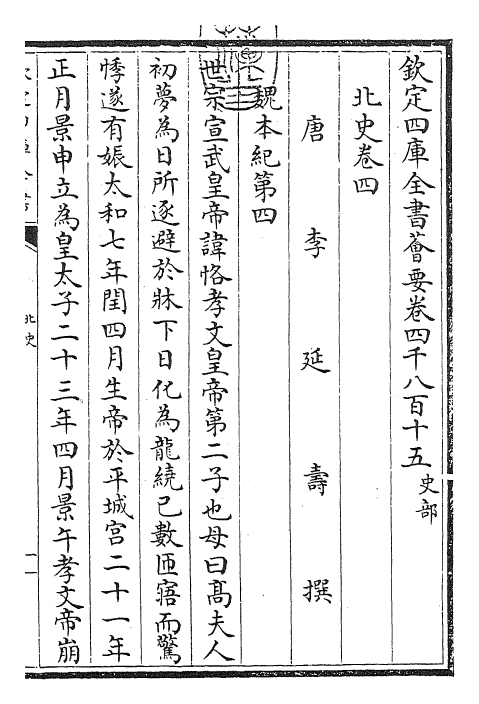 欽定四庫全書薈要卷四千八百十五 史部
北史卷四
唐 李 延 壽 撰
魏本紀第四
世宗宣武皇帝諱恪孝文皇帝第二子也母曰髙夫人
初夢為日所逐避於牀下日化為龍繞已數匝寤而驚
悸遂有娠太和七年閏四月生帝於平城宫二十一年
正月景申立為皇太子二十三年四月景午孝文帝崩
北史